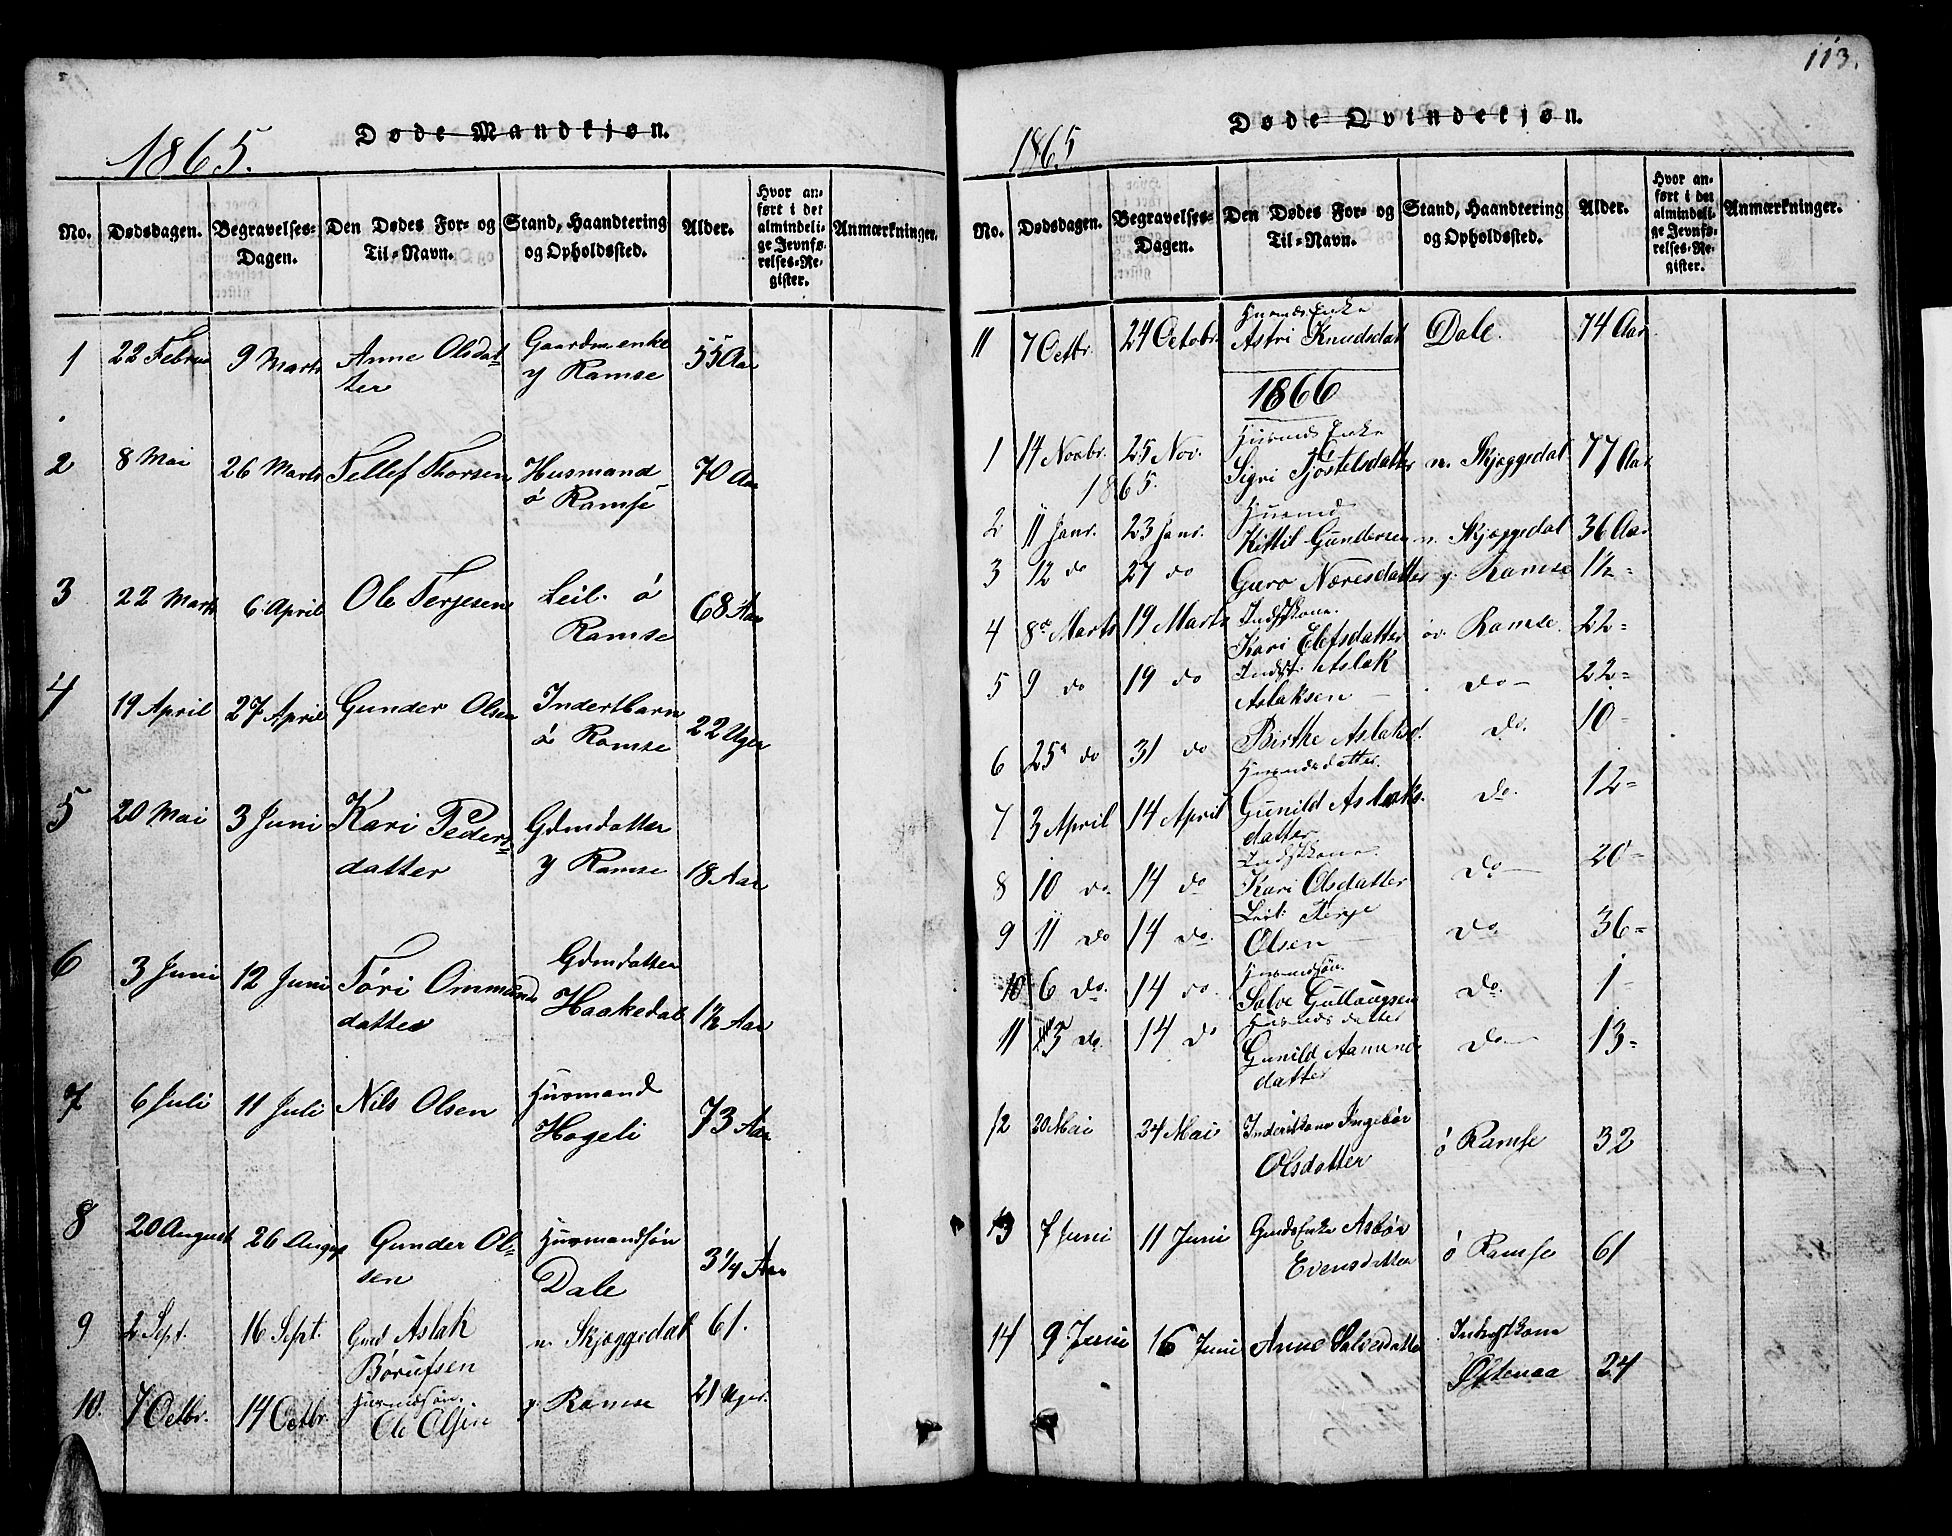 113.
1865. Døde Mandkjøn.
No. Dødsdagen. Begravelses-Dagen. Den Dødes For- og Til-Navn. Stand, Haandtering og Opholdssted. Alder. Hvor anført i det almindelige Jevnførelses-Register. Anmærkninger.
1 22 Februar 9 Marts Anne Olsdat-
ter Gaardm. enke
y Ramse 55 Aar
2 8 Mai 26 Marts Tellef Thorsen Husmand
ø Ramse 70 Aar
3 22 Marts 6 April Ole Terjesen Leil. ø
Ramse 68 Aar
4 19 April 27 April Gunder Olsen Inderstbarn
ø Ramse 22 Uger
5 20 Mai 3 Juni Kari Peders-
datter Gdmdatter
y Ramse 18 Aar
6 3 Juni 12 Juni Tøri Ommunds
datter Gdmdatter
Haakedal 1½ Aar
7 6 Juli 11 Juli Nils Olsen Husmand
Hogeli 73 Aar
8 20 August 26 August Gunder Ol-
sen Husmandsøn
Dale 3 1/4 Aar
9 2 Sept. 16 Sept. Gmd Aslak
Børufsen n. Skjæggedal 61.
10. 7 Octbr. 14 Octbr. Husmdsøn.
Ole Olsen y. Ramse 21 Uger.
1865 Døde Qvindekjøn.
No. Dødsdagen. Begravelses-Dagen. Den Dødes For- og Til-Navn. Stand, Haandtering og Opholdssted. Alder. Hvor anført i det almindelige Jevnførelses-Register. Anmærkninger.
11 7 Octbr. 24 Octobr. Husmds Enke
Astri Knudsdat Dale. 74 Aar
1866
1 14 Novbr. 25 Nov. Husmds Enke
1865. Sigri Tjøstelsdatter n. Skjæggedal 77 Aar
2 11 Janr. 23 Janr. Husmd
Kittil Gundersen n. Skjæggedal 36 Aar
3 12 do 27 do Guro Næresdatter y. Ramse 1½ -
4 8de Marts 19 Marts Indstkone.
Kari Elefsdatter øv. Ramse 22 -
5 9 do 19 do Indst. Aslak
Aslaksen do 22 -
6 25 do 31 do Birthe Aslaksd. do. 10 -
7 3 April 14 April Husmdsdatter.
Gunild Aslaks-
datter do. 12 -
8 10 do. 14 do Indstkone.
Kari Olsdatter do 20 -
9 11 do 14 do. Leil. Terje
Olsen do. 36 -
10 6 do. 14 do. Husmdsøn.
Salve Gullaugsen do. 1 -
11 13 do. 14 do Husmdsdatter
Gunild Aamunds
datter do 13 -
12 20 Mai 24 Mai Inderstkone Ingebør
Olsdatter ø Ramse 32
13 7 Juni 11 Juni Gmds Enke Asbør
Evensdatter ø Ramse 61
14 9 Juni 16 Juni Anne Salvesdatter Inderstkone
Øftenaa 24